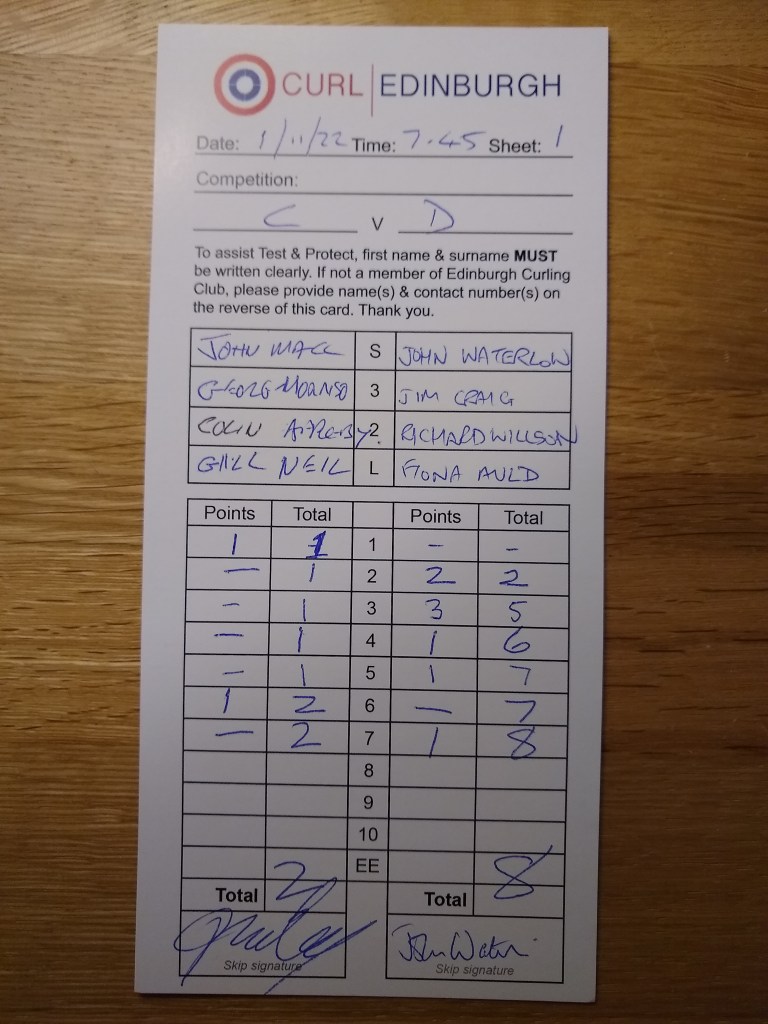 CURL EDINBURGH
Date: 1/11/22 Time: 7.45 Sheet: 1
Competition:
C v D
To assist Test & Protect, first name & surname MUST
be written clearly. If not a member of Edinburgh Curling
Club, please provide name(s) & contact number(s) on
the reverse of this card. Thank you.
JOHN S JOHN WATERLOW
3 JIM CRAIG
COLIN 2 RICHARD WILLSON
GILL NEIL L FIONA AULD
Points Total Points Total
1 1 1 - -
- 1 2 2 2
- 1 3 3 5
- 1 4 1 6
- 1 5 1 7
1 2 6 - 7
- 2 7 1 8
8
9
10
EE
Total 2 Total 8
John
Skip signature Skip signature